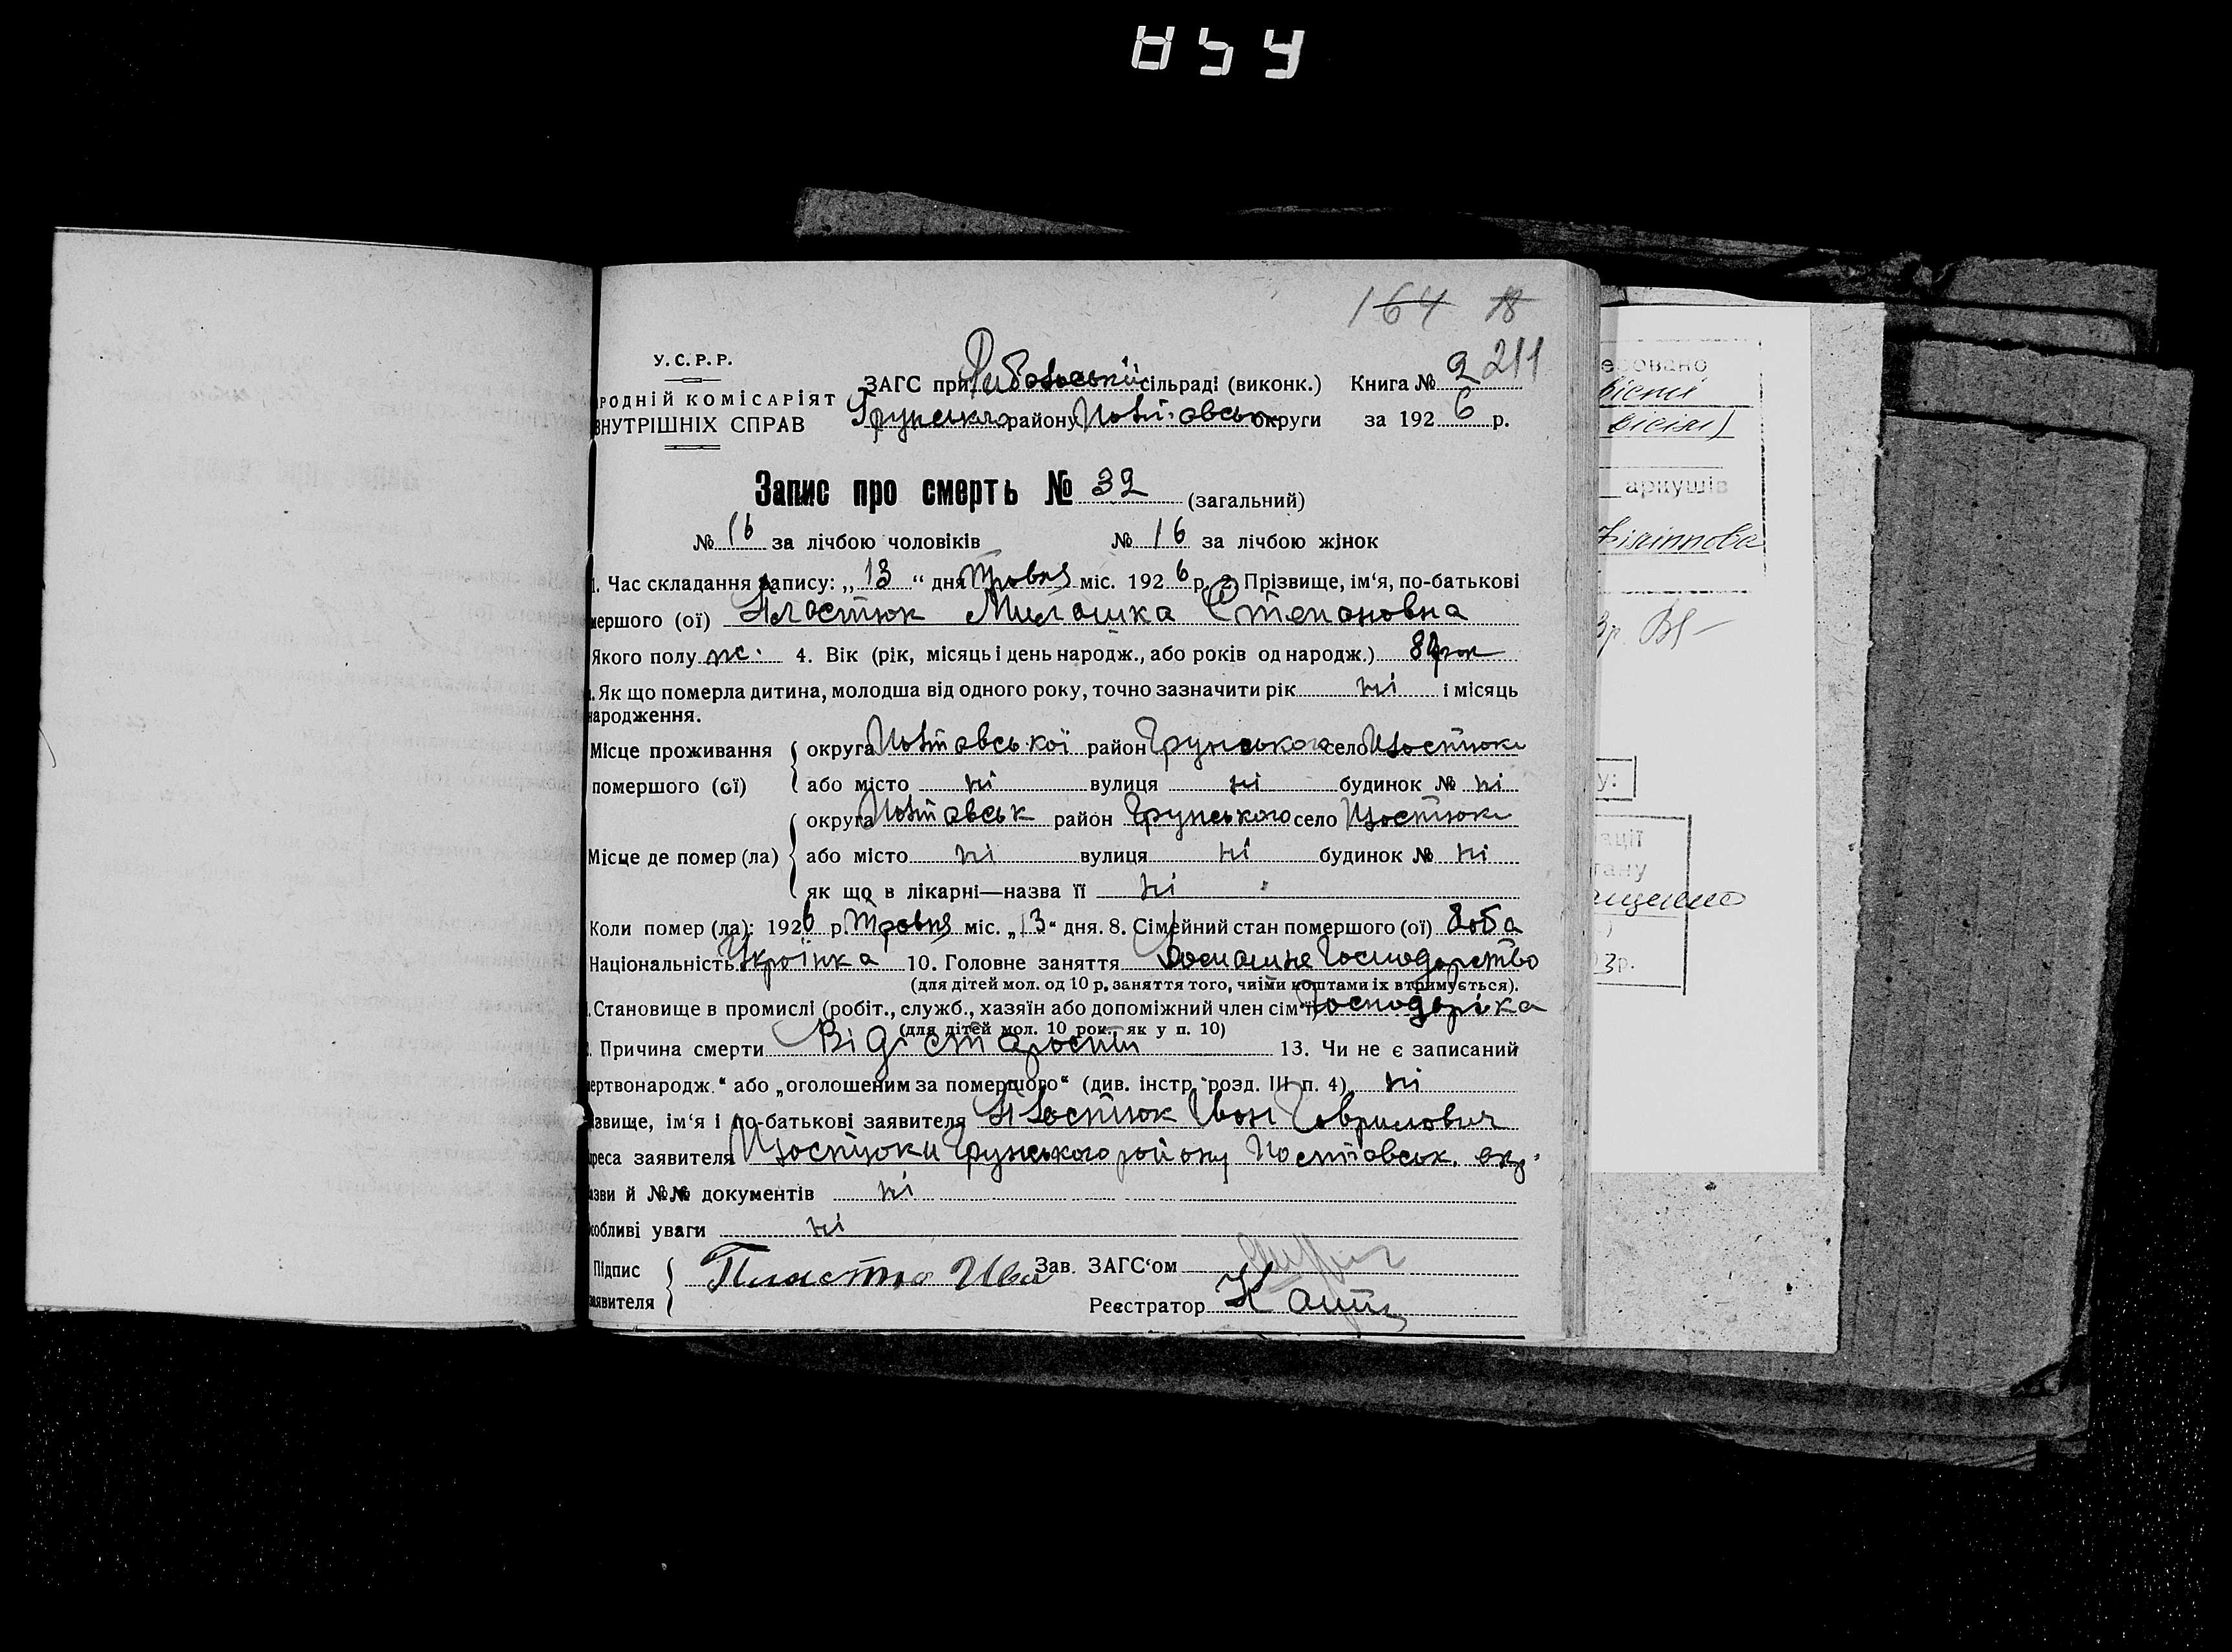 854
164 18
У.С.Р.Р.
211
ЗАГС при сільраді (виконк.) Книга № 2
РОДНІЙ КОМІСАРІЯТ
Грунського району Полтавськ округи за 1926 р.
ВНУТРІШНІХ СПРАВ
Запис про смерть № 32 (загальний)
№ 16 за лічбою чоловіків № 16 за лічбою жінок
1. Час складання запису: „13“ дня Травня міс. 1926 р. 2. Прізвище, ім‘я, по-батькові
мершого (ої) Пластюк Милашка Степановна
Якого полу ж. 4. Вік (рік, місяць і день народж., або років од народж.)
. Як що померла дитина, молодша від одного року, точно зазначити рік ні і місяць
народження.
Місце проживання округа Полтавської район Грунського село
помершого (ої) або місто ні вулиця ні будинок № ні
округа Полтавськ район Грунського село
Місце де помер (ла) або місто ні вулиця ні будинок № ні
як що в лікарні—назва її ні
Коли помер (ла): 1926 р. Травня міс. „13“ дня. 8. Сімейний стан помершого (ої)
Національність Украінка 10. Головне заняття Домашне Господарство
(для дітей мол. од 10 р. заняття того, чиїми коштами їх втримується).
. Становище в промислі (робіт., служб., хазяїн або допоміжний член сім‘ї) Господаріка
(для дітей мол. 10 рок. як у п. 10)
. Причина смерти Від старости 13. Чи не є записаний
ертвонародж.“ або „оголошеним за помершого“ (див. інстр. розд. III п. 4) ні
звище, ім‘я і по-батькові заявителя Пластюк Іван Гаврилович
реса заявителя Грунського району Полтавськ. окр.
азви й №№ документів ні
собливі уваги ні
Підпис Пластюк Ива Зав. ЗАГС‘ом
аявителя Реєстратор
еровано
вісті
вісім)
аркушів
Філіппова
3р.
у:
ації
тану
ищенко
)
03р.